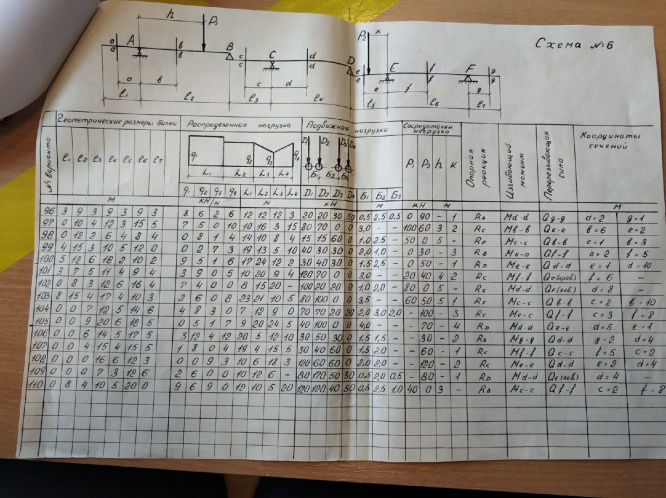 Схема №6
h P₁ P₂ к
a A b B c C d D e E f F g
a b c d e f g
l₁ l₂ l₃ l₄ l₅ l₆ l₇
№ варианта Геометрические размеры балки Распределенная нагрузка Подвижная нагрузка Сосредоточен. нагрузка Опорная реакция Изгибающий момент Перерезывающая сила Координаты сечений
l₁ l₂ l₃ l₄ l₅ l₆ l₇ q₁ L₁ L₂ L₃ L₄ D₁ D₂ D₃ D₄ Б₁ Б₂ P₁ P₂ h к
м q₁ q₂ q₃ q₄ L₁ L₂ L₃ L₄ D₁ D₂ D₃ D₄ Б₁ Б₂ Б₃
кН/м м кН м кН м м
96 3 9 3 9 3 9 3 8 6 2 6 12 12 12 3 20 20 30 50 0,5 2,5 0,5 0 90 - 1 Rв Md-d Qg-g d=2 g=1
97 0 10 4 12 3 15 5 7 5 0 10 10 16 3 15 80 70 0 0 3,0 - - 100 60 3 2 Rc Mb-b Qe-e b=6 e=2
98 0 12 2 6 4 8 4 0 8 1 4 14 10 8 4 15 15 60 0 1,0 2,5 - 50 0 5 - Mc-c Qb-b c=1 b=3
99 4 15 3 10 5 12 0 0 2 7 3 19 13 5 10 40 30 30 0 2,0 1,0 - 0 30 - 3 Rв Ma-a Qf-f a=2 f=5
100 5 12 6 18 2 10 2 9 5 1 6 17 24 12 2 30 40 30 0 1,5 2,5 - 0 50 - 1 Me-e Qd-d e=1 d=10
101 3 7 5 11 4 9 4 3 9 0 5 10 20 9 4 120 70 0 0 - - 20 40 4 2 Rc Mf-f f=6 -
102 0 8 3 12 6 16 4 7 4 0 0 8 15 20 - 100 20 20 0 1,0 2,0 - 80 0 5 - Md-d d=8 -
103 8 15 4 17 4 10 3 2 6 0 8 23 24 10 5 80 100 0 0 3,5 - - 60 50 5 1 Mc-c Qb-b c=2 b=10
104 0 0 7 12 5 14 6 4 8 3 0 7 12 9 0 70 70 20 20 2,0 3,0 2,0 - 100 - 3 Rc Me-e Qf-f f=8
105 0 0 9 20 6 18 5 0 5 1 7 9 20 24 5 40 100 0 0 4,0 - - - 70 - 4 Md-d Qe-e d=5 e=1
106 0 0 6 14 5 17 5 3 12 4 12 20 5 12 10 30 50 30 0 1,5 1,5 - - 30 - 2 Mg-g Qd-d g=2 d=4
107 0 0 4 15 4 15 5 1 8 0 4 19 4 15 5 30 40 60 0 1,5 2,0 - - 60 - 1 Rc Mf-f Qc-c f=5 c=2
108 0 0 0 16 6 12 3 0 0 9 3 10 6 18 3 120 60 60 0 2,0 2,0 - - 120 - 2 Rc Me-e Qd-d e=2 d=4
109 0 0 0 7 3 12 6 2 6 0 0 10 12 6 - 80 170 50 30 0,5 2,0 0,5 - 80 - 1 Md-d d=4 -
110 0 8 4 10 5 20 0 9 6 9 0 12 10 5 20 120 120 40 50 0,5 2,5 1,0 40 0 3 - Rв Mc-c Qf-f c=2 f=8